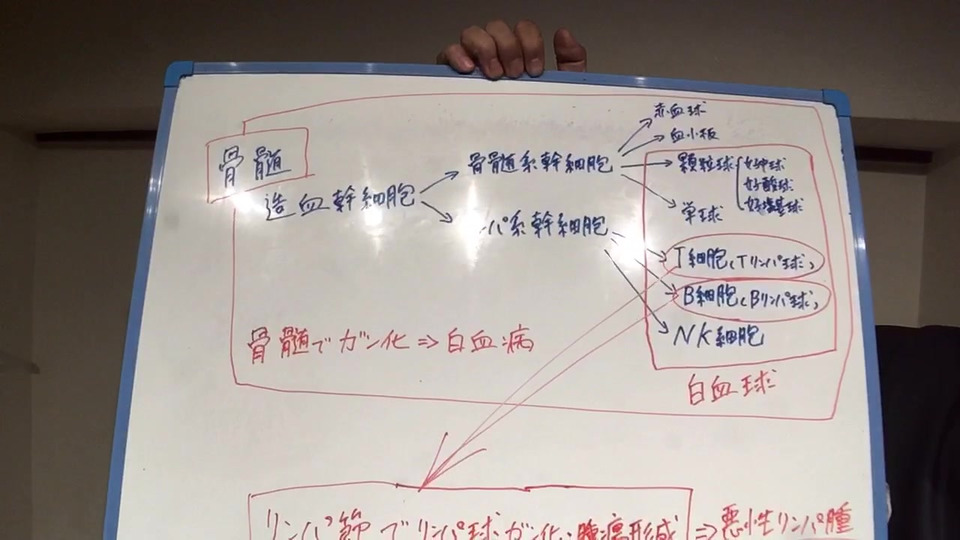 骨髄
造血幹細胞
骨髄系幹細胞
赤血球
血小板
顆粒球
好中球
好酸球
好塩基球
単球
パ系幹細胞
T細胞(Tリンパ球)
B細胞(Bリンパ球)
NK細胞
白血球
骨髄でガン化⇒白血病
リンパ節でリンパ球ガン化、腫瘍形成⇒悪性リンパ腫